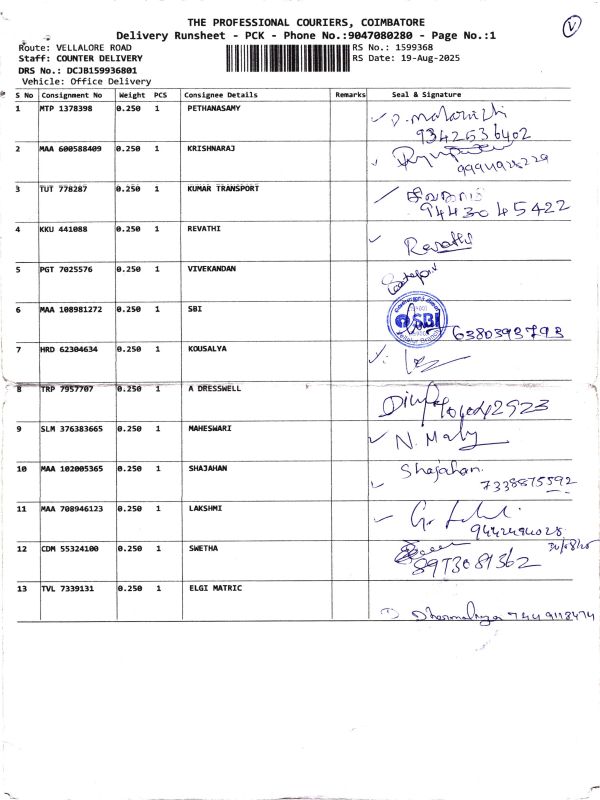 THE PROFESSIONAL COURIERS, COIMBATORE
Delivery Runsheet - PCK - Phone No.:9047080280 - Page No.:1
V
Route: VELLALORE ROAD
RS No.: 1599368
Staff: COUNTER DELIVERY
RS Date: 19-Aug-2025
DRS No.: DCJB159936801
Vehicle: Office Delivery
S No Consignment No Weight PCS Consignee Details Remarks Seal & Signature
1 MTP 1378398 0.250 1 PETHANASAMY
9342536402
2 MAA 600588409 0.250 1 KRISHNARAJ
3 TUT 778287 0.250 1 KUMAR TRANSPORT
9443045422
4 KKU 441088 0.250 1 REVATHI Revathi
5 PGT 7025576 0.250 1 VIVEKANDAN
6 MAA 108981272 0.250 1 SBI SBI
6380393793
7 HRD 62304634 0.250 1 KOUSALYA
8 TRP 7957707 0.250 1 A DRESSWELL
9 SLM 376383665 0.250 1 MAHESWARI
10 MAA 102005365 0.250 1 SHAJAHAN Shajahan.
7338875592
11 MAA 708946123 0.250 1 LAKSHMI
9442494028
12 CDM 55324100 0.250 1 SWETHA
8973081362
13 TVL 7339131 0.250 1 ELGI MATRIC
7449118474